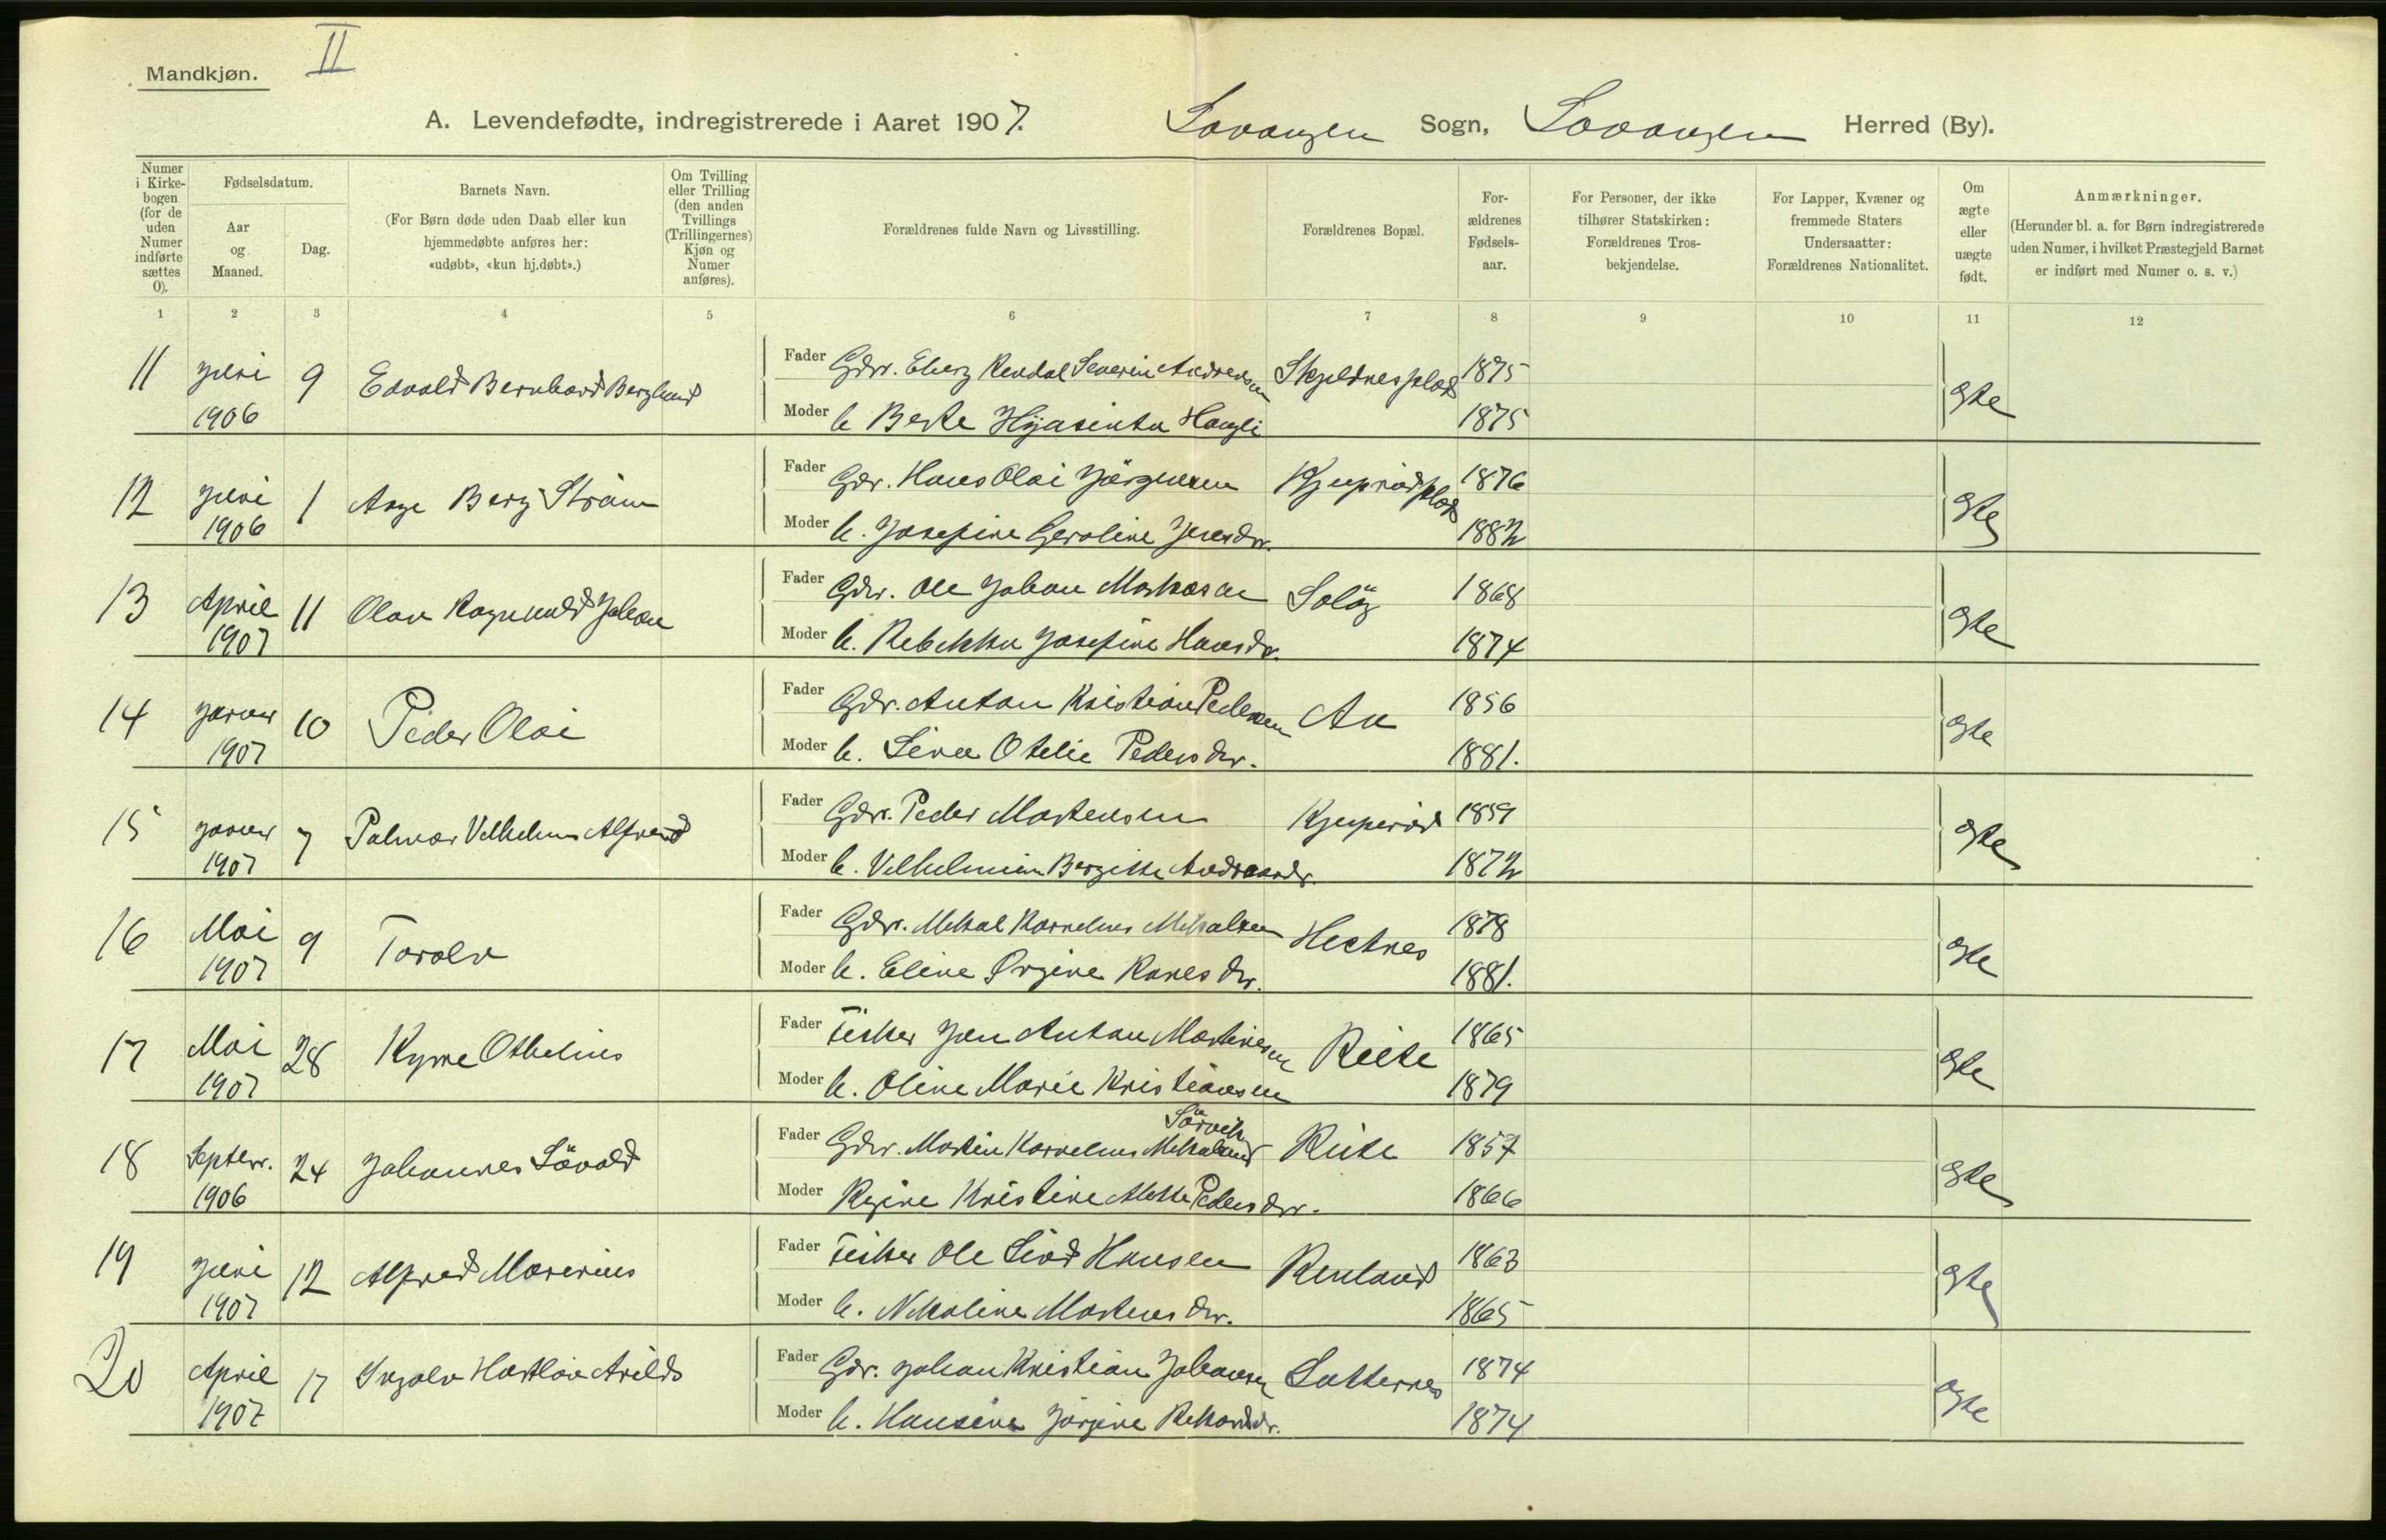 Mandkjøn.
II
A. Levendefødte, indregistrerede i Aaret 1907. Lavangen Sogn, Lavangen Herred (By).
Numer i Kirkebogen (for de uden Numer indførte sættes 0).
Fødselsdatum.
Aar og Maaned.
Dag.
Barnets Navn.
(For Børn døde uden Daab eller kun hjemmedøbte anføres her: «udøbt», «kun hj.døbt».)
Om Tvilling eller Trilling (den anden Tvillings (Trillingernes) Kjøn og Numer anføres).
Forældrenes fulde Navn og Livsstilling.
Forældrenes Bopæl.
Forældrenes Fødselsaar.
For Personer, der ikke tilhører Statskirken: Forældrenes Trosbekjendelse.
For Lapper, Kvæner og fremmede Staters Undersaatter: Forældrenes Nationalitet.
Om ægte eller uægte født.
Anmærkninger.
(Herunder bl. a. for Børn indregistrerede uden Numer, i hvilket Præstegjeld Barnet er indført med Numer o. s. v.)
1 2 3 4 5 6 7 8 9 10 11 12
11 Juni 1906 9 Edvald Bernhard Berglund
Fader Gdr. Eberg Rendal Severin Andreasen 1875 gte
Moder h. Berte Hyasinta Haugli 1875
12 Juni 1906 1 Aage Berg Strøm
Fader Gdr. Hans Olai Jörgensen 1876 gte
Moder h. Josefine Geroline Jensdr. 1882
13 April 1907 11 Olav Ragnvald Johan
Fader Gdr. Ole Johan Markusen Soløy 1868 gte
Moder h. Rebekka Josefine Hansdr. 1874
14 Januar 1907 10 Peder Olai
Fader Gdr. Anton Kristian Pedersen Aa 1856 gte
Moder h. Sina Otelie Pedersdr. 1881.
15 Januar 1907 7 Palmar Vilhelm Alfred
Fader Gdr. Peder Mortensen 1859 gte
Moder h. Vilhelmine Bergitte Andreasdr. 1872
16 Mai 1907 9 Torolv
Fader Gdr. Mikal Kornelius Mikalsen Hestnes 1878 gte
Moder h. Eline Ørgine Hansdr. 1881.
17 Mai 1907 28 Kyrre Othelius
Fader Fisker Jon Anton Martinesen 1865 gte
Moder h. Oline Marie Kristiansen 1879
18 Septbr. 1906 24 Johannes Sövald
Fader Gdr. Martin Kornelius Mikalsen Sørvik 1857 gte
Moder Regine Kristine Pedersdr. 1866
19 Juni 1907 12 Alfred Marerius
Fader Fisker Ole Sivert Hansen Renland 1863 gte
Moder h. Nikoline Mortensdr. 1865
20 April 1907 17 Ingolv Hartløv Arilds
Fader Gdr. Johan Kristian Johansen 1874 gte
Moder h. Hansine Jørgine Rikardsdr. 1874